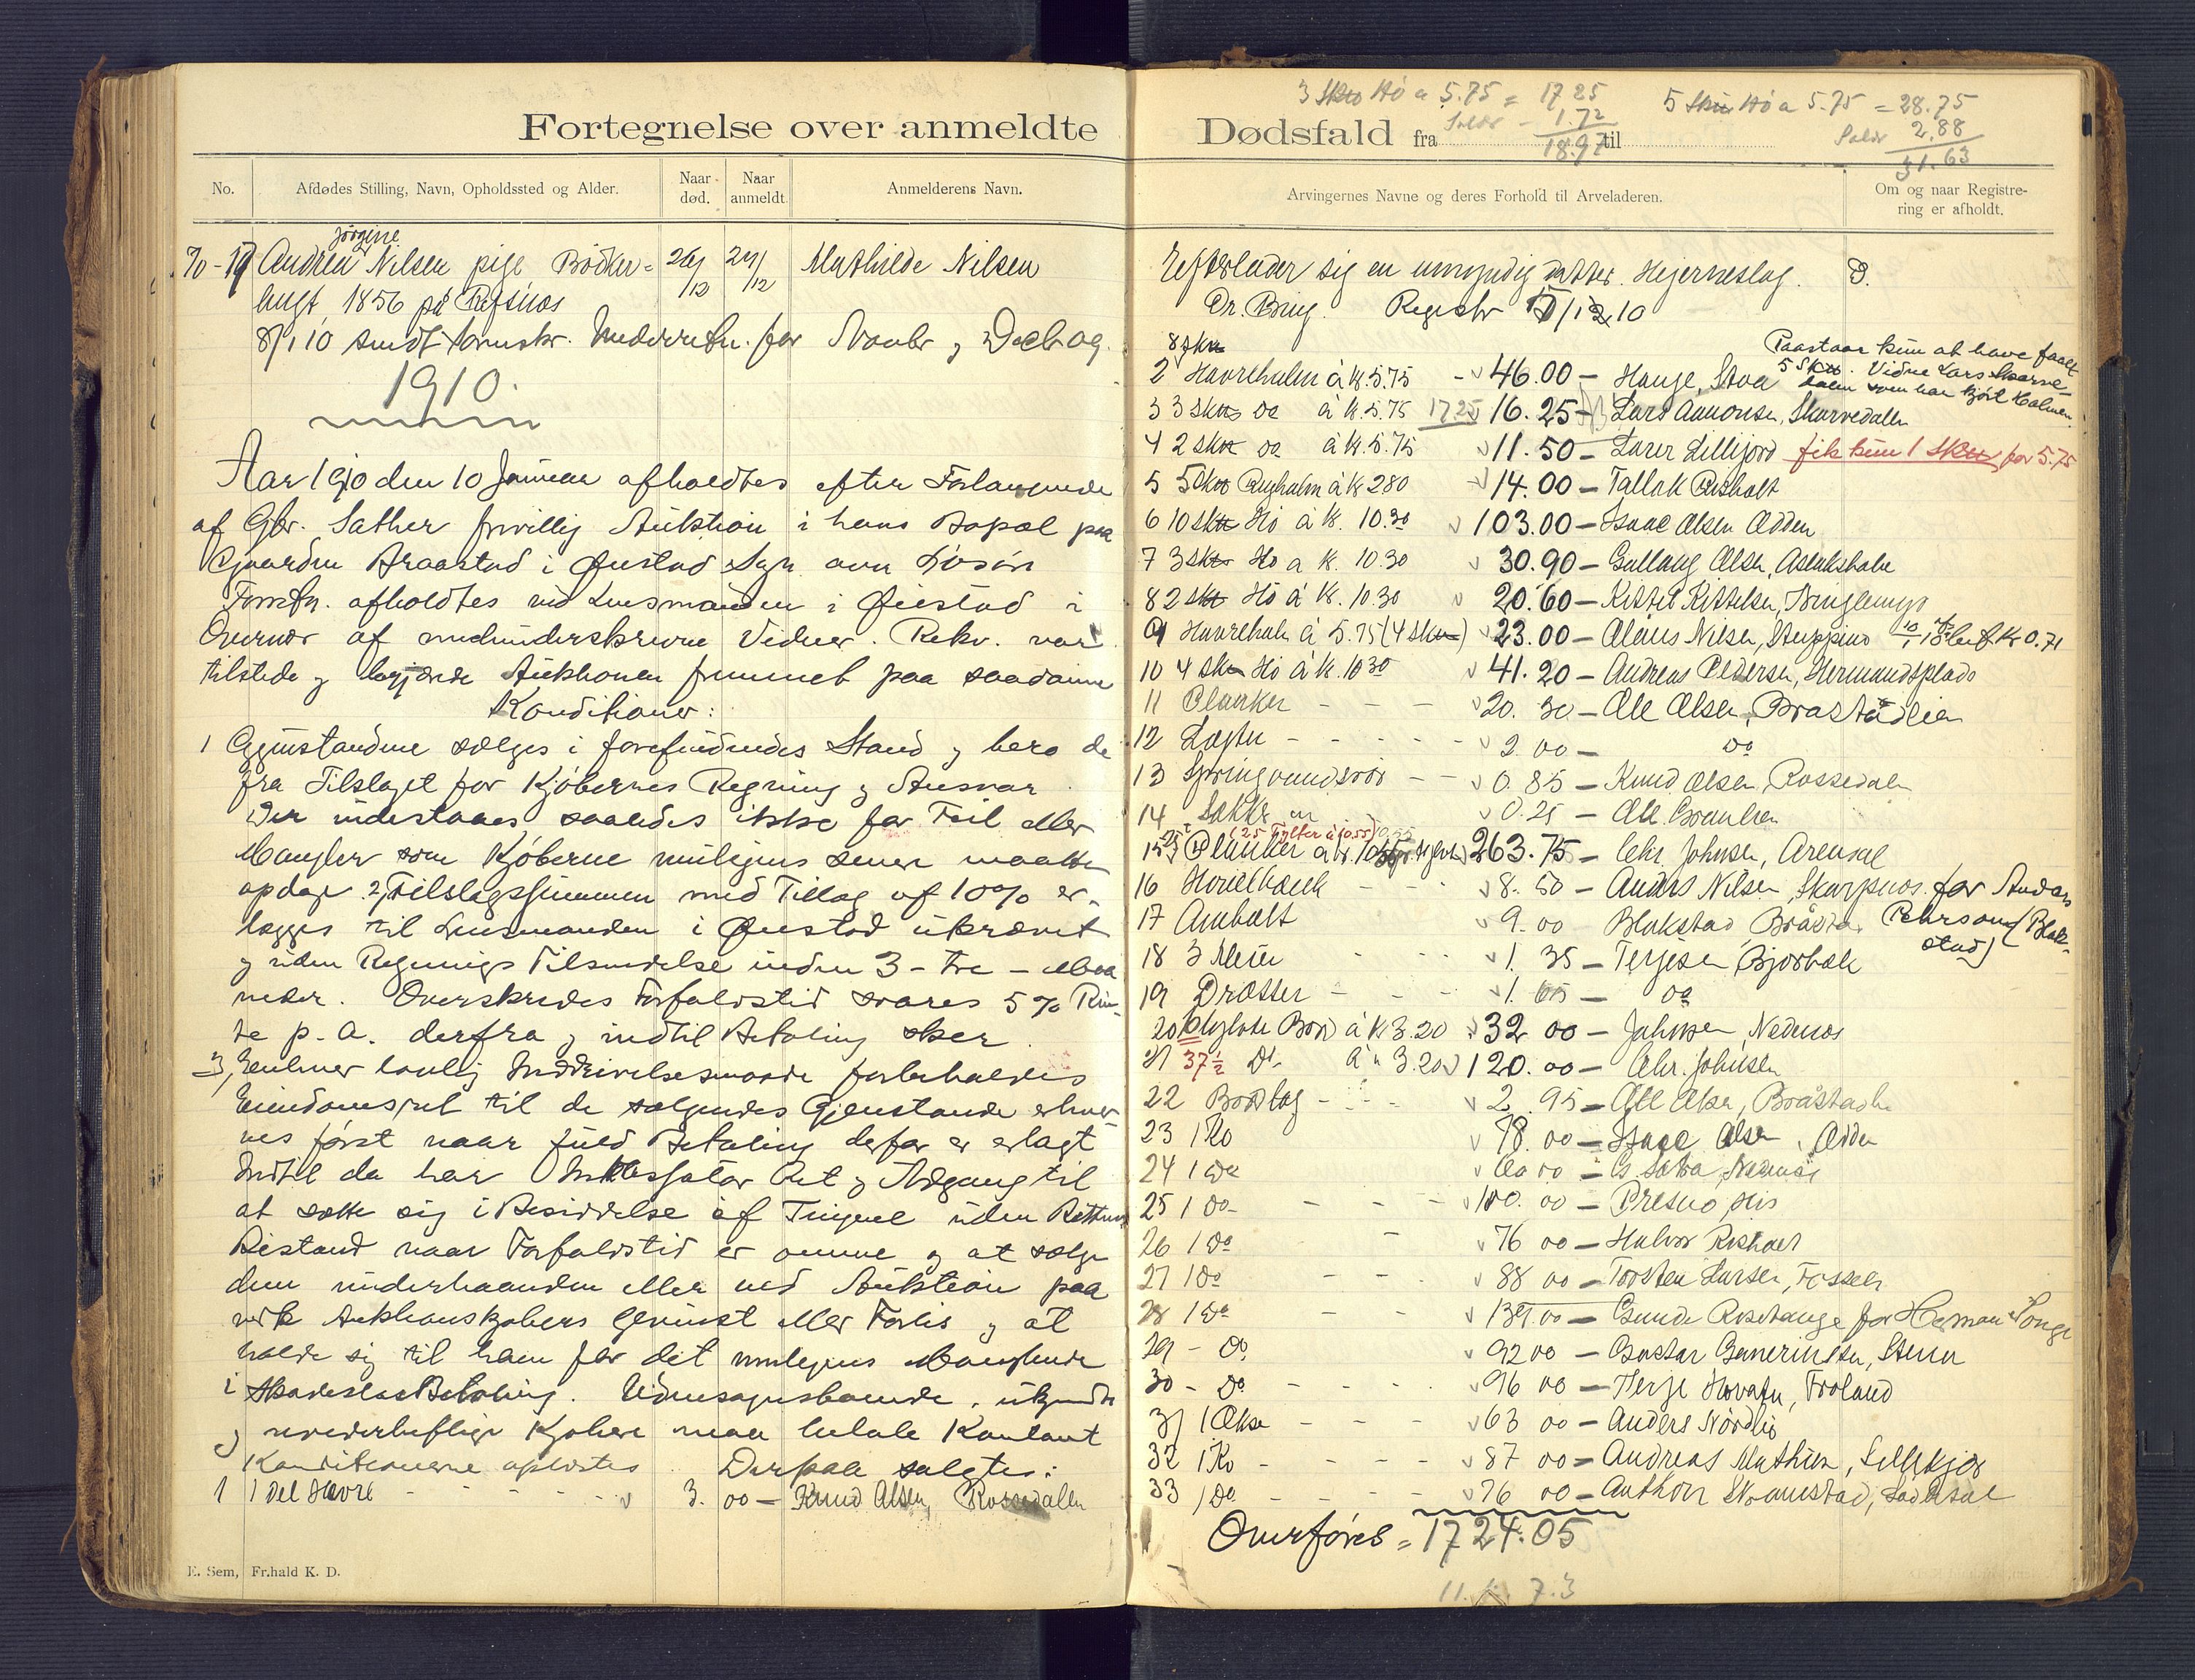 Fortegnelse over anmeldte
No.
Afdødes Stilling, Navn, Opholdssted og Alder.
Naar død.
Naar anmeldt
Anmelderens Navn.
Jörgine
70-19 Andrea Nilsen pige Bödker= 26/12 27/12 Mathilde Nilsen
hugt, 1856 på Refsnes
8/1 10 sendt Sornskr. Indberetn. for Novbr og Decbr og.
1910.
Aar 1910 den 10 Januar afholdtes efter Forlangende
af Gbr. Sæther frivillig Auktion i hans Bopæl paa
Gaarden Braastad i Øiestad Sogn
Forretn. afholdtes ved Lensmanden i Øiestad i
Overvær af medunderskrevne Vidner. Rekv. var
tilstede og begjærede Auktionen fremmet paa saadanne
Konditioner:
1 Gjenstandene sælges i forefindendes Stand og bero de
fra Tilslaget for Kjöbernes Regning og Ansvar
Der indestaaes saaledes ikke for Feil eller
Mangler som Kjöberne muligens senere maatte
opdage. 2, Tilslagssummen med Tillæg af 10% er-
lægges til Lensmanden i Øiestad ukrævet
og uden Regnings Tilsendelse inden 3 - tre - Maa
neder. Overskrides Forfaldstid svares 5% Ren-
te p. a. derfra og indtil Betaling sker.
3, Enhver lovlig Inddrivelsesmaade forbeholdes
Eiendomsret til de sælgendes Gjenstande erhver-
ves först naar fuld Betaling derfor er erlagt
Indtil da har Inkassator Ret og Adgang til
at sætte sig i Besiddelse af Tingene uden Rettens
Bistand naar Forfaldstid er omme og at sælge
dem underhaanden eller ved Auktion paa
Auktionskjöbers Gevinst eller Forlis og at
holde sig til ham for det muligens Manglende
i Skadeslös Betaling. Udensognsboende, ukjendte
og uvederheftige Kjöbere maa betale Kontant
Konditionerne oplæstes. Derpaa solgtes:
1 1 Del Havre - - - 3. 00 - Knud Olsen, Rossedalen
E. Sem, Fr.hald K. D.
3 Skto Hö a 5.75 = 17 25
Salær - 1.72
18.97
5 Skto Hö a 5.75 = 28.75
Salær 2.88
31.63
Dødsfald fra til
Arvingernes Navne og deres Forhold til Arveladeren.
Om og naar Registrering er afholdt.
Efterlader sig en umyndig datter. Hjerneslag. D.
Dr. Bing. Registr
8 skto
2 Havrehalm à K. 5.75 - 46.00 - Hauge, Stoa
Paastaar kun at have faaet
5 Skto. Vidne Lars Skarve-
dalen som har kjört Halmen.
3 3 Skto do à K. 5.75 17 25 16.25 - Lars Aanonsen, Skarvedalen
4 2 skto do à K. 5.75 11.50 - Lars Lillejord fik kun 1 Skto for 5.75
5 5 Skto Rughalm à K 2 80 14.00 - Tallak Risholt
6 10 Skto Hö à K. 10.30 103.00 - Isaac Olsen Odden
7 3 Skto Hö a K. 10.30 30.90 - Gullaug Olsen,
8 2 Skt Hö à K. 10.30 20.60 - Kittel Kittelsen,
9 Havrehalm à 5.75 (4 Skto) 23.00 - Olaus Nilsen, Kr 0.71
10 4 Skto Hö à K. 10 30 41.20 - Andreas Pedersen, Hermandsplads
11 Planker - - - 20. 30 - Ole Olsen, Braastadlien
12 Lægter - - - - 2.00 - do
13 Springvandsrör - - 0.85 - Knud Olsen, Rossedalen
14 Sække 0.25 - Ole
(25 Tylfter à 10.55)
15 25 Planker 263.75 - Chr. Johnsen, Arendal
16 Hövelbænk - - - 8.50 - Anders Nilsen, Skarpnes. for Anders
17 Ambolt 9.00 Blakstad, Pehrson (Blak-
stad)
18 3 Meier - - - 1.35 - Terjesen Bjorbæk
19 Drætter - - - 1.65 - do
20 10 Tylvte Bord à K 3.20 32 00 - Johnsen, Nedenes
21 37½ Do à " 3.20 120.00 - Chr. Johnsen
22 Bordlag - - - 2.95 - Ole Olsen, Bråstadli
23 1 Ko 78.00 - Isaac Olsen, Odden
24 1 Do
25 1 Do - - - 100.00 - His
26 1 Do - 76 00 - Halvor Risholt
27 1 Do - - 88 00 - Torsten Larsen,
28 1 Do - - 139.00 - Gunde for Herman Songe
29 - Do 92 00 - Gustav
30 - Do - - - - 96 00 - Terje Hovatn, Froland
31 1 Okse - - - 63 00 - Anders Nordlis
32 1 Ko - - - - 87 00 - Andreas Mathisen,
33 1 Do - - - - 76 00 - Anthon
Overföres = 1724.05